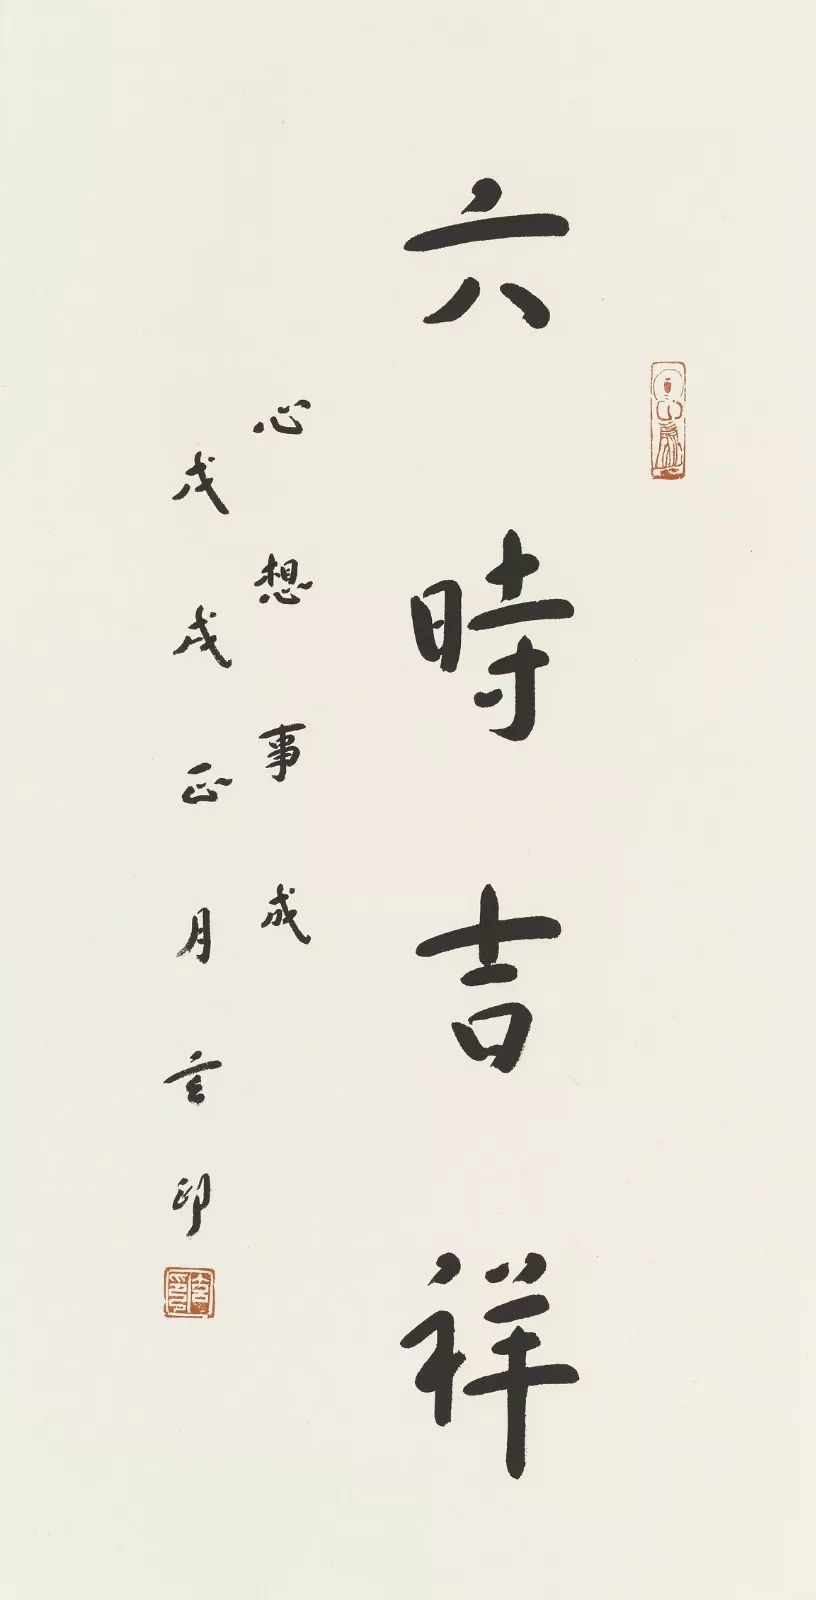 六時吉祥
心想事成
戊戌正月玄印